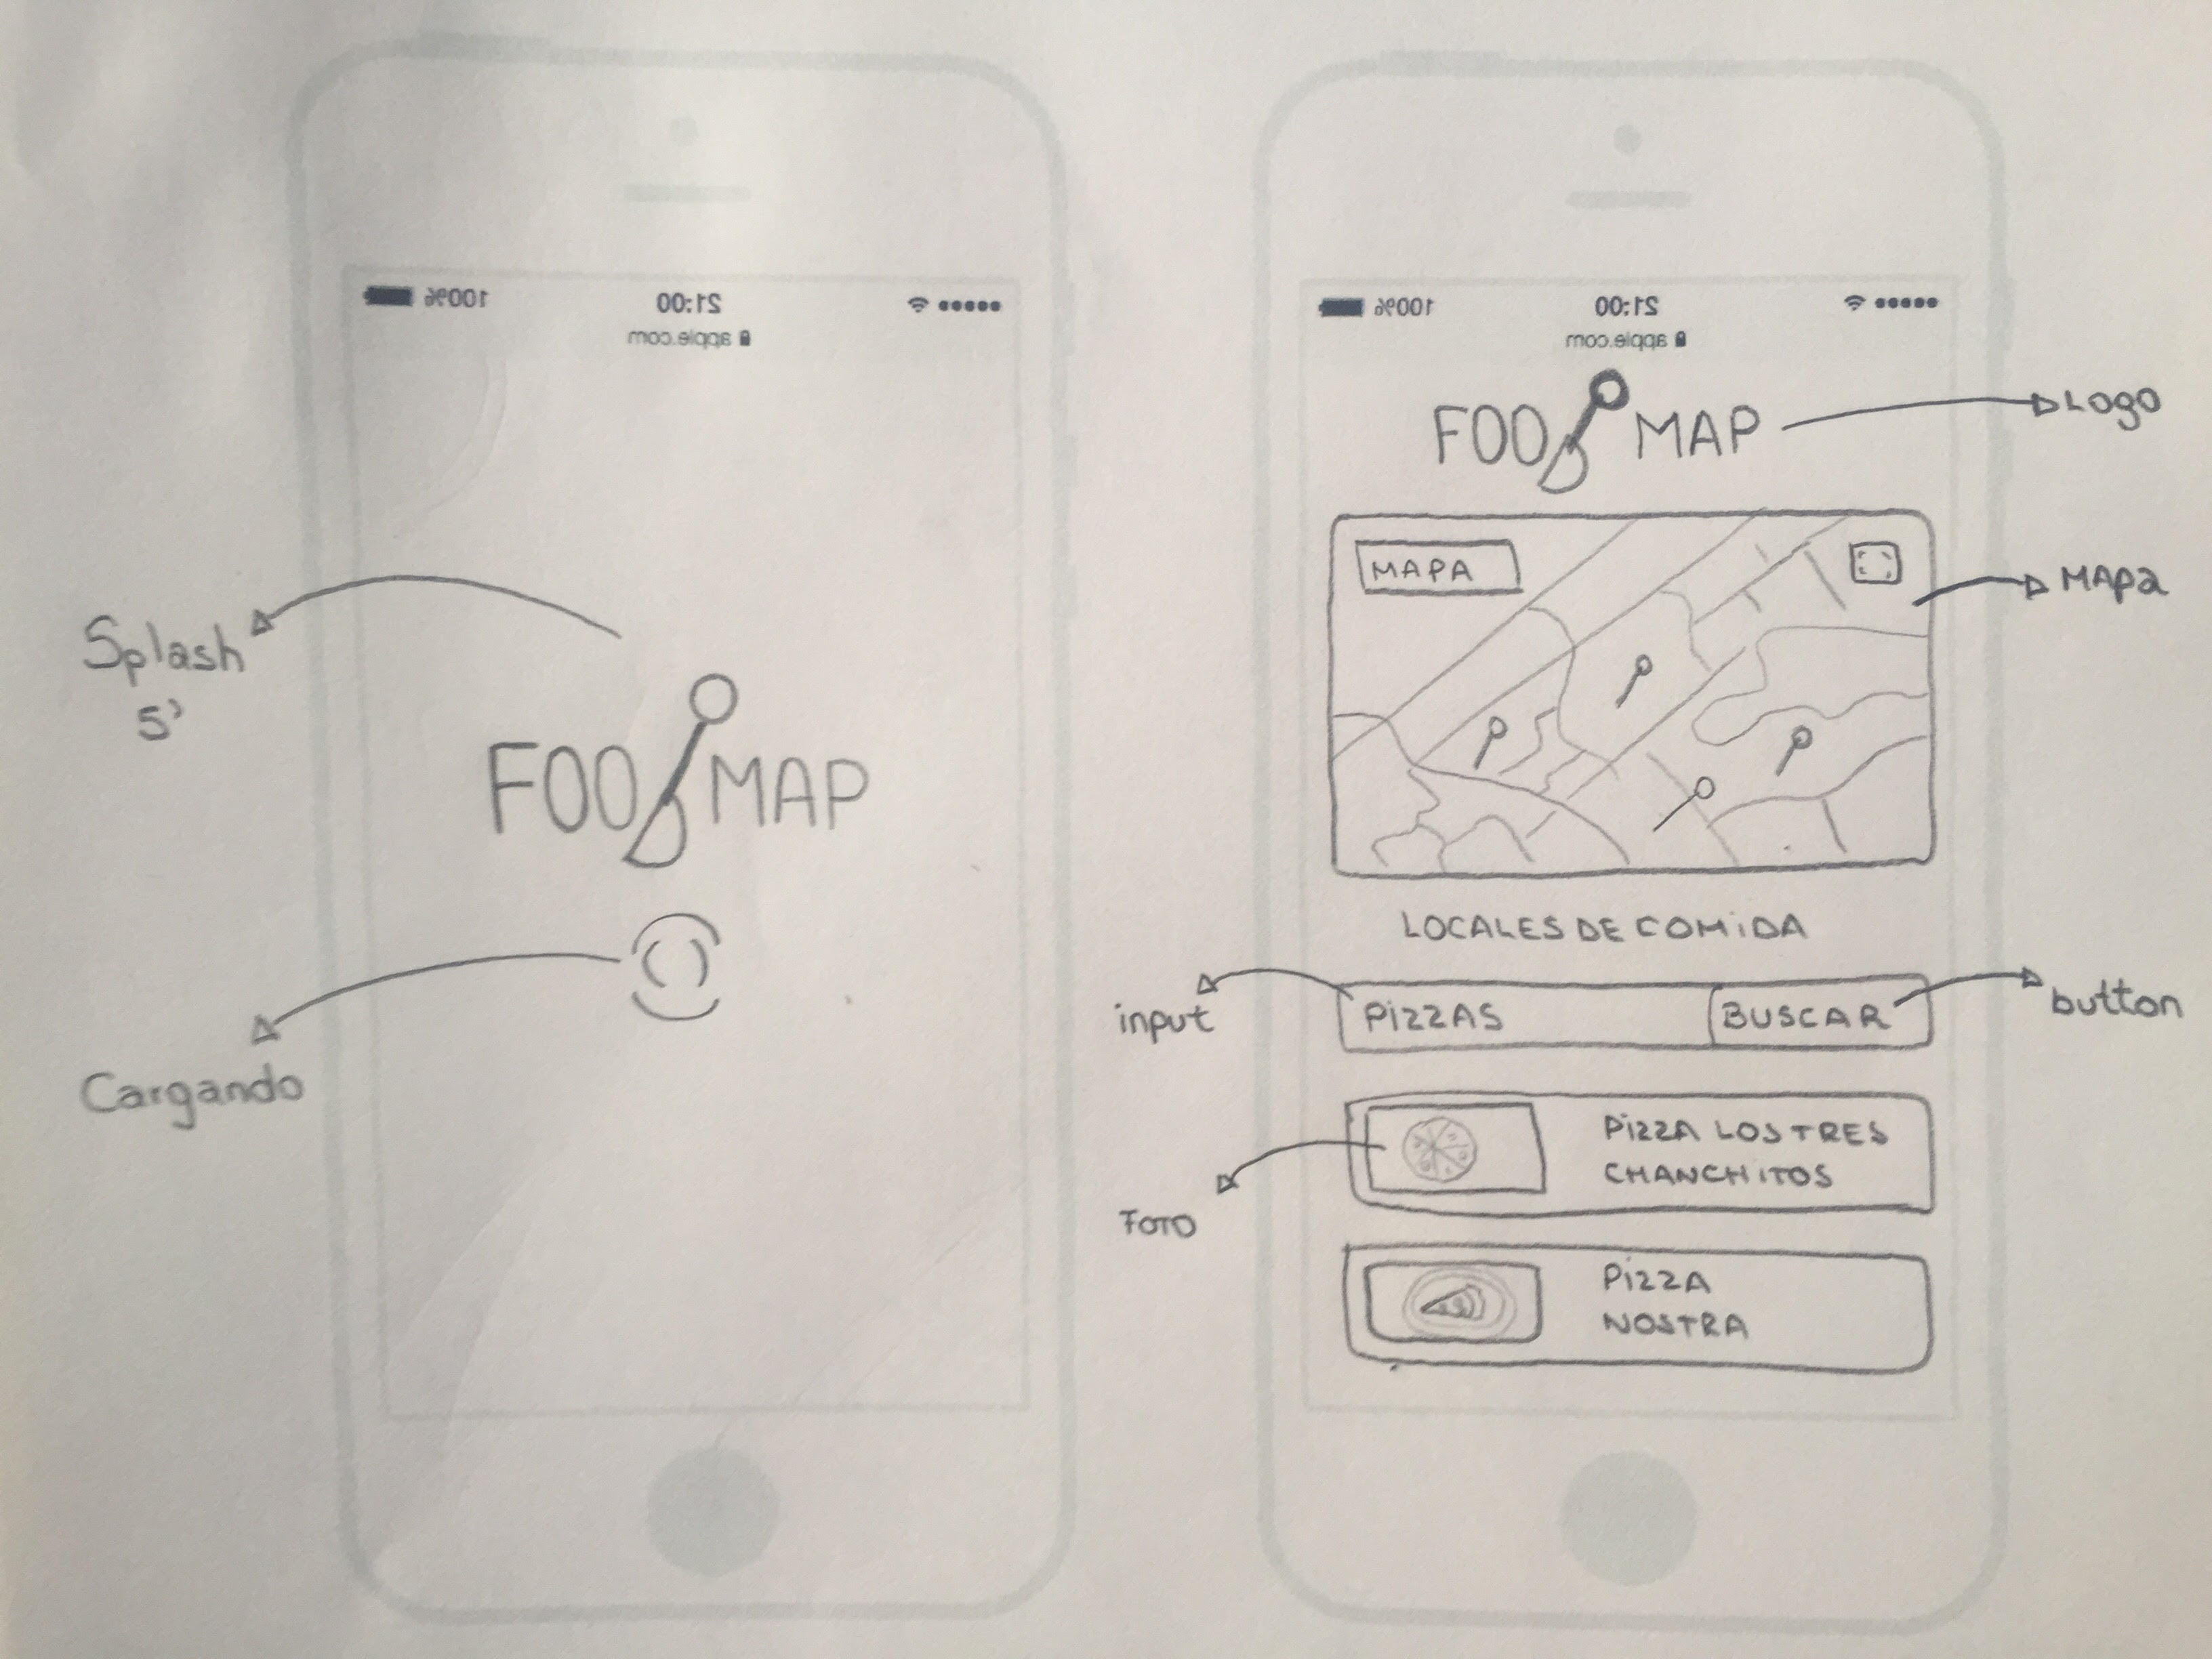 100% 21:00
apple.com
Splash
5'
FOOD MAP
Cargando
100% 21:00
apple.com
FOOD MAP
Logo
MAPA
MAPa
LOCALES DE COMiDA
input
PiZZAS
BUSCAR
button
PiZZA LOS TRES
CHANCHiTOS
FOTO
PiZZA
NOSTRA